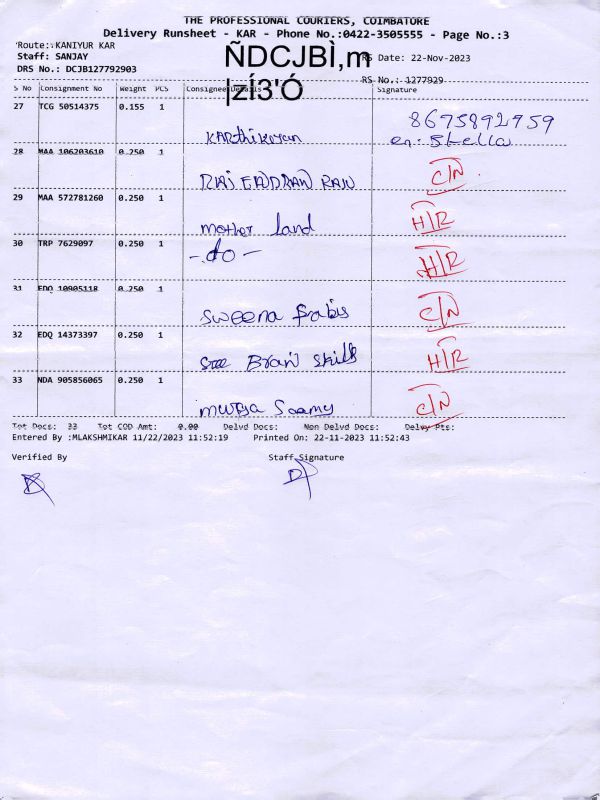 THE PROFESSIONAL COURIERS, COIMBATORE
Delivery Runsheet - KAR - Phone No.:0422-3505555 - Page No.:3
Route: KANIYUR KAR
Staff: SANJAY
ÑDCJBÌ,m
RS Date: 22-Nov-2023
DRS No.: DCJB127792903
|zÍ3'Ó
RS No.: 1277929
S No Consignment No Weight PCS Consignee Details Signature
27 TCG 50514375 0.155 1
8675892959
Karthikeyan
28 MAA 106203610 0.250 1
C/N
29 MAA 572781260 0.250 1
mother land H/R
30 TRP 7629097 0.250 1
- do - H/R
31 EDQ 10905118 0.250 1
Sweena C/N
32 EDQ 14373397 0.250 1
Brain Skills H/R
33 NDA 905856065 0.250 1
C/N
Tot Docs: 33 Tot COD Amt: 0.00 Delvd Docs: Non Delvd Docs: Delvy Pts:
Entered By :MLAKSHMIKAR 11/22/2023 11:52:19 Printed On: 22-11-2023 11:52:43
Verified By Staff Signature